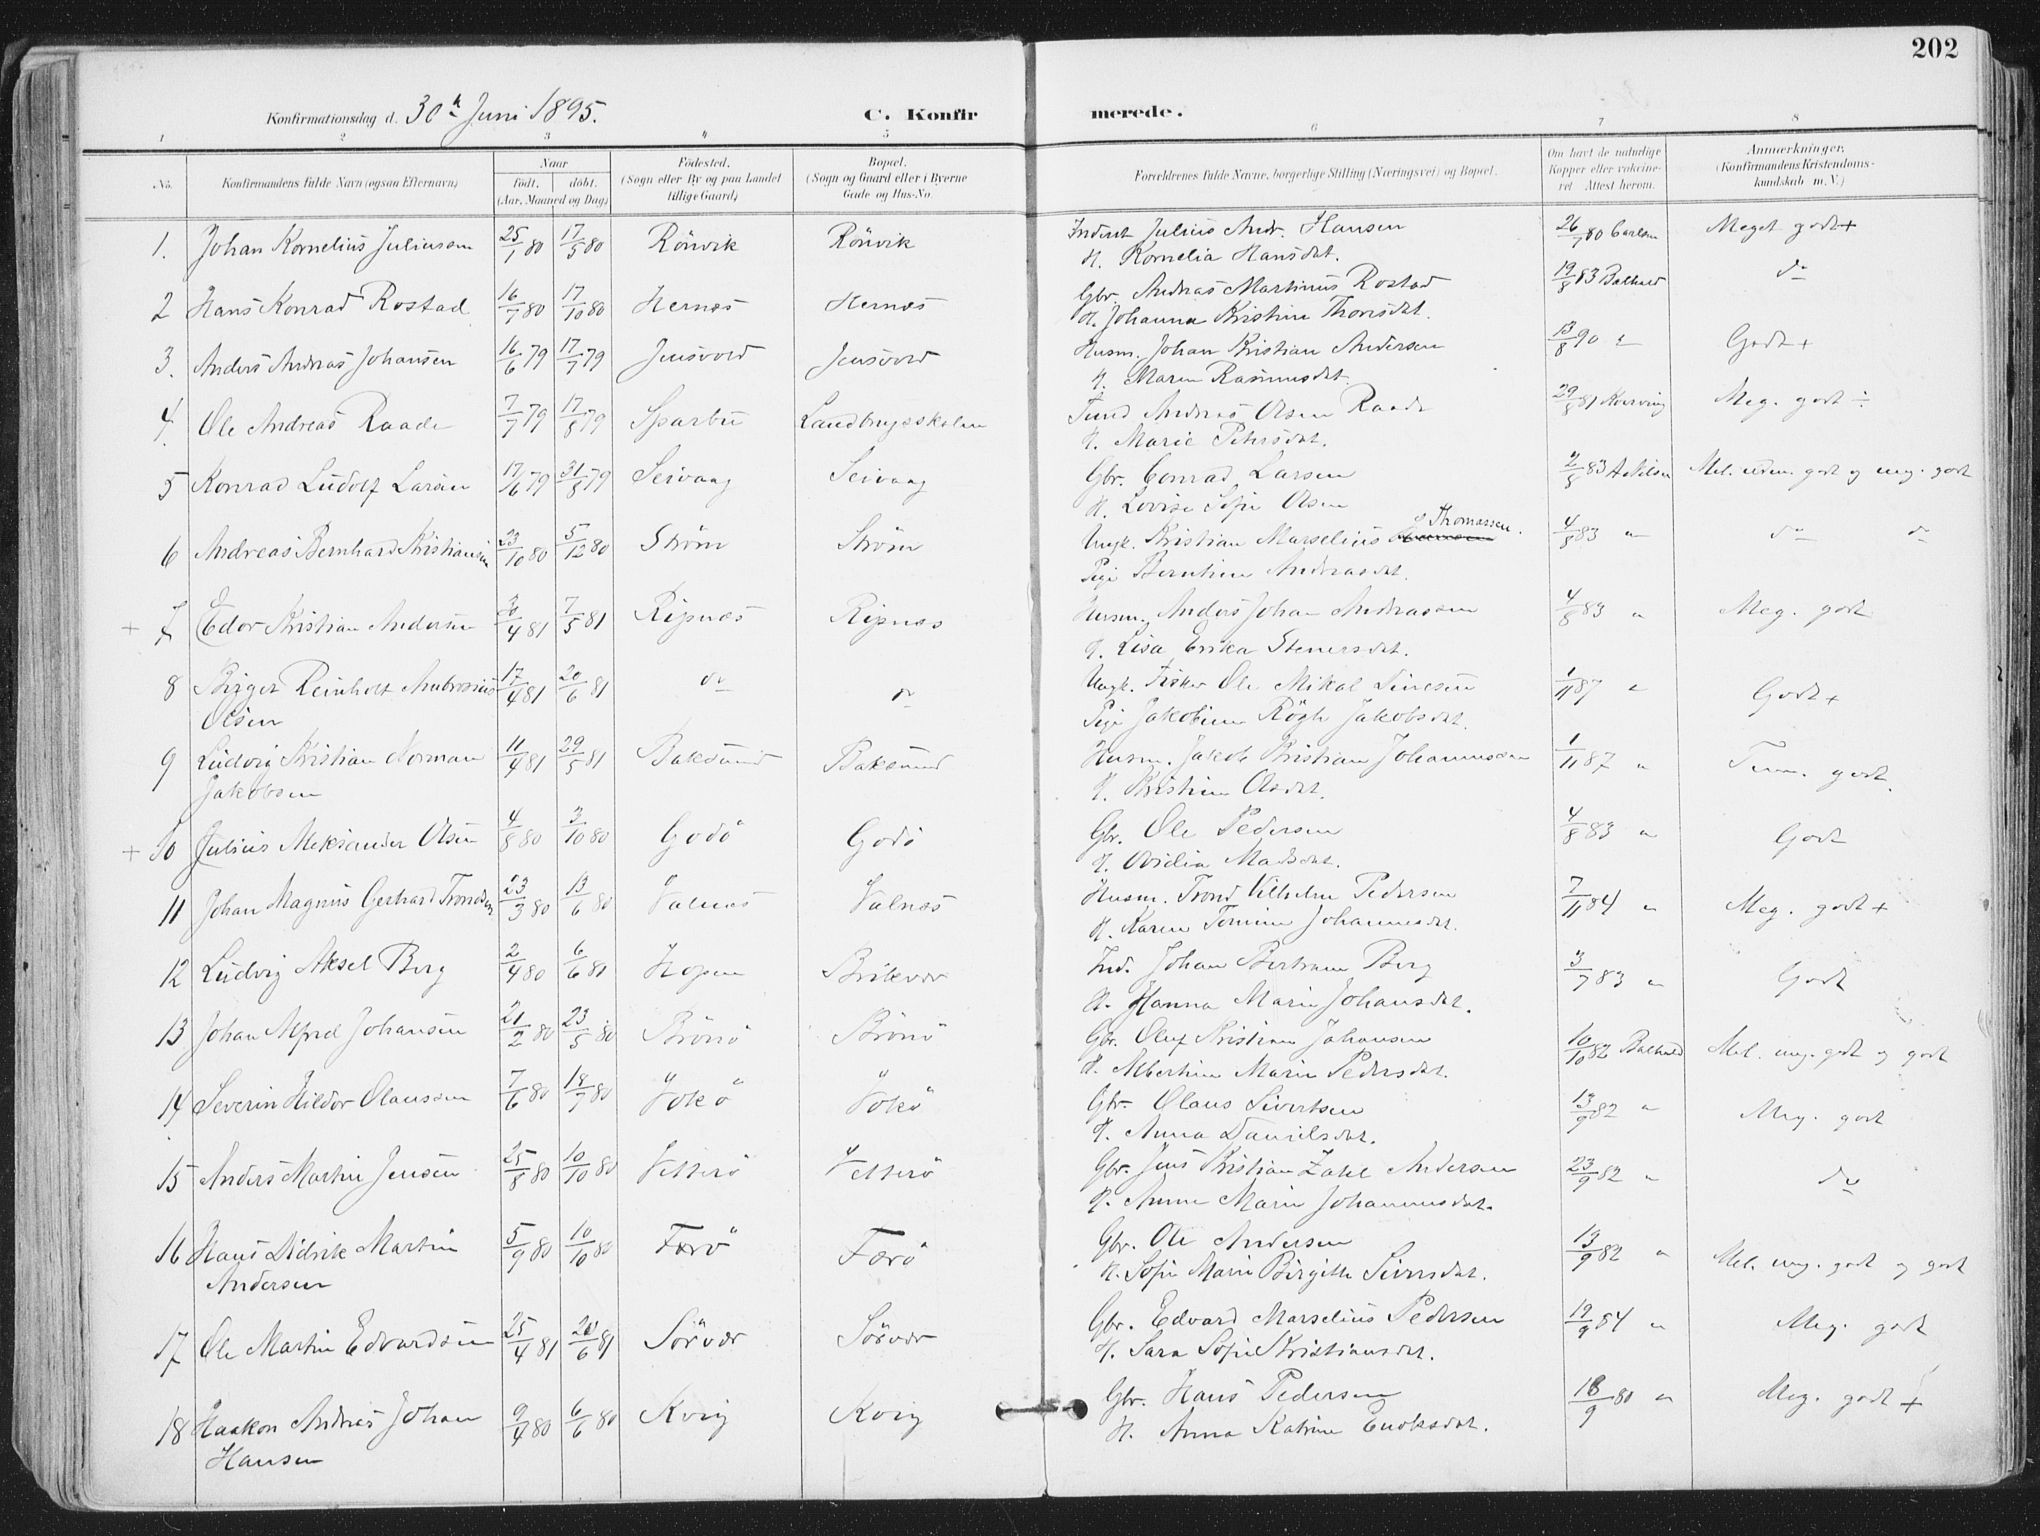 202
Konfirmationsdag d. 30te Juni 1895.
C. Konfirmerede.
1 2 3 4 5 6 7 8
No. Konfirmandens fulde Navn (ogsaa Efternavn) Naar født. døbt. (Aar, Maaned og Dag) Fødested. (Sogn eller By og paa Landet tillige Gaard) Bopæl. (Sogn og Gaard eller i Byerne Gade og Hus-No. Forældrenes fulde Navne, borgerlige Stilling (Næringsvei) og Bopæl. Om havt de naturlige Kopper eller vakcineret. Attest herom. Anmærkninger. (Konfirmandens Kristendomskundskab m. V.)
1. Johan Kornelius Juliussen 25/1 80 17/5 80 Rönvik Rönvik Inderst Julius Andr. Hansen 26/7 80 Carlsen Meget godt +
H. Kornelia Hansdat.
2 Hans Konrad Rostad 16/7 80 17/10 80 Hernæs Hernæs Gbr. Andreas Martinus Rostad 19/8 83 Balhald do
H. Johanna Kristine Thorisdat.
3. Anders Andreas Johansen 16/6 79 17/7 79 Jensvold Jensvold Husm. Johan Kristian Andersen 13/8 90 " Godt +
H. Maren Rasmusdat.
4. Ole Andreas Raade 7/7 79 17/8 79 Sparbu Landbrugsskolen Andreas Olsen Raade 29/8 81 Meg. godt ÷
H. Marie Petersdat.
5 Konrad Ludolf Larsen 17/6 79 31/8 79 Seivaag Seivaag Gbr. Conrad Larsen 2/8 83 A Nilsen Mel. udm. godt og meg. godt
H. Lovise Sofie Olsen
6 Andreas Bernhard Kristiansen 23/10 80 5/12 80 Strøm Strøm Ungk. Kristian Marselius Thomassen. 4/8 83 " do do
Pige Berntine Andreasdat.
+ 7 Edor Kristian Andersen 30/4 81 7/5 81 Ripnæs Ripnæs Husm. Anders Johan Andreassen 4/8 83 " Meg. godt
H. Lisa Erika Stenersdat.
8 Birger Reinholt Ambrosius 17/4 81 20/6 81 do do Ungk. Fisker Ole Mikal 1/11 87 " Godt +
Olsen Pige Jakobine Røgh Jakobsdat.
9 Ludvig Kristian Norman 11/4 81 29/5 81 Baksund Baksund Husm. Jakob Kristian Johannessen 1/11 87 " Tem. godt.
Jakobsen H. Kristine Olsdat.
+ 10 Julius Aleksander Olsen 4/8 80 3/10 80 Godö Godö Gbr. Ole Pedersen 4/8 83 " Godt
H. Ovidia Madsdat.
11 Johan Magnus Gerhard Trondsen 23/3 80 13/6 80 Valnæs Valnæs Husm. Trond Vilhelm Pedersen 7/11 84 " Meg. godt +
H. Karen Tomine Johannesdat.
12 Ludvig Aksel Berg 2/4 80 6/6 80 Hopen Brikvær Ind. Johan Bertram Berg 3/7 83 " Godt
H. Hanna Marie Johansdat.
13 Johan Alfred Johansen 21/2 80 23/5 80 Brönö Brönö Gbr. Oluf Kristian Johansen 10/10 82 Balhald Mel. meg. godt og godt
H. Albertine Marie Pedersdat.
14 Severin Hildor Olaussen 7/6 80 18/7 80 Vokö Vokö Gbr. Olaus Sivertsen 13/9 82 " Meg. godt
H. Anna Danielsdat.
15 Anders Martin Jensen 25/8 80 10/10 80 Vetterö Vetterö Gbr. Jens Kristian Zahl Andersen 23/9 82 " do
H. Anne Marie Johannesdat.
16 Hans Didrik Martin 5/9 80 10/10 80 Færö Færö Gbr. Ole Andersen 13/9 82 " Mel. meg. godt og godt
Andersen H. Sofie Marie Birgitte Siversdat.
17 Ole Martin Edvardsen 25/4 81 20/6 81 Sörvær Sörvær Gbr. Edvard Marselius Pedersen 12/9 84 " Meg. godt
H. Sara Sofie Kristiansdat.
18 Haakon Andreas Johan 9/4 80 6/6 80 Kvig Kvig Gbr. Hans Pedersen 18/9 80 " Meg. godt +
Hansen H. Anna Katrine Enoksdat.